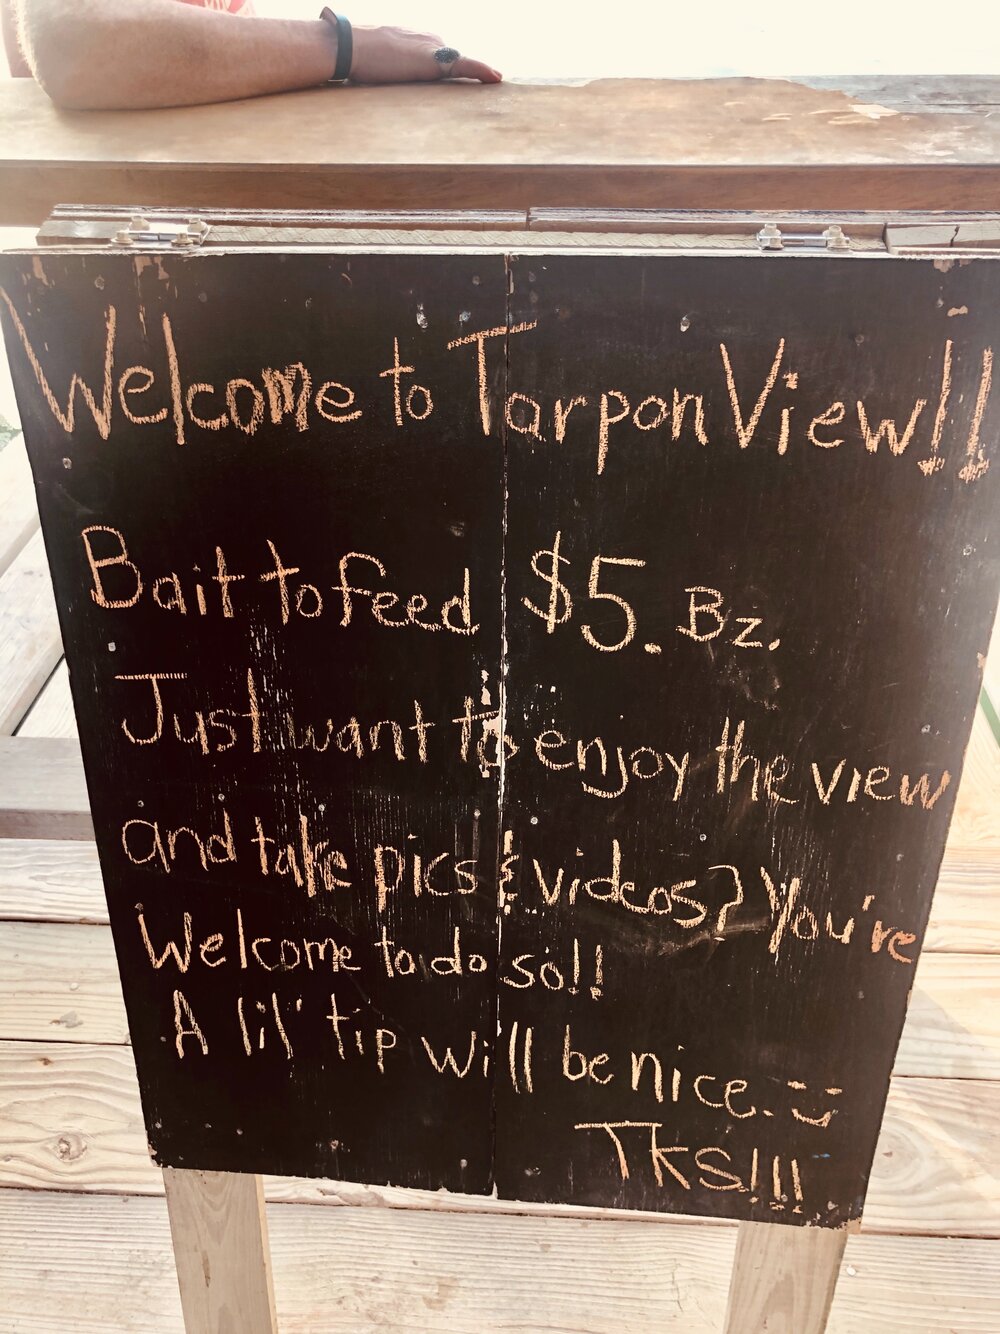 Welcome to Tarpon View!!
Bait to feed $5. Bz.
Just want to enjoy the view
and take pics & videos? You're
Welcome to do so!!
A lil' tip will be nice. :)
Tks!!!